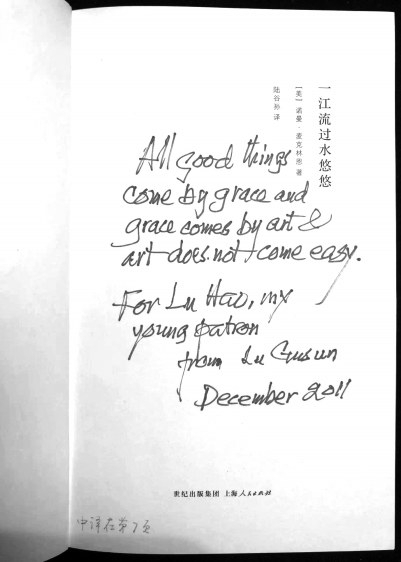 一江流过水悠悠
[美] 诺曼·麦克林恩 著
陆谷孙 译
All good things
come by grace and
grace comes by art &
art does not come easy.
For Lu Hao, my
young patron
from Lu Gusun
December 2011
世纪出版集团 上海人民出版社
中译在第7页